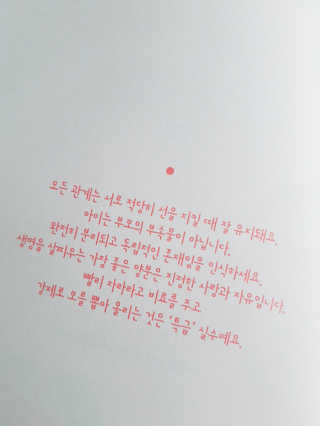 모든 관계는 서로 적당히 선을 지킬 때 잘 유지돼요.
아이는 부모의 부속물이 아닙니다.
완전히 분리되고 독립적인 존재임을 인식하세요.
생명을 살찌우는 가장 좋은 양분은 진정한 사랑과 자유입니다.
빨리 자라라고 비료를 주고
강제로 모를 뽑아 올리는 것은 '특급' 실수예요.